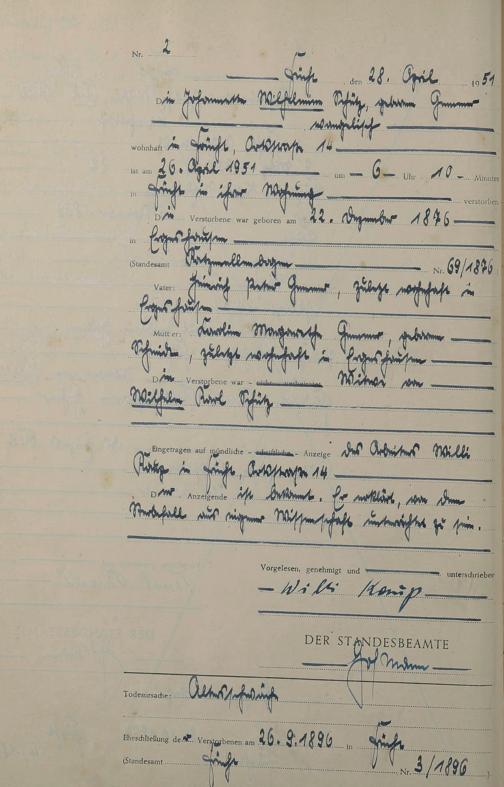 Nr. 2
Frücht, den 28. April 1951
Die Johannette Wilhelmine Schütz, geborene Gemmer
evangelisch
wohnhaft in Frücht, Ortstraße 14
ist am 26. April 1951 um 6 Uhr 10 Minuten
in Frücht in ihrer Wohnung verstorben.
Die Verstorbene war geboren am 22. Dezember 1876
in Ergeshausen
(Standesamt Katzenellenbogen Nr. 69/1876
Vater: Heinrich Peter Gemmer, zuletzt wohnhaft in
Ergeshausen
Mutter: Karoline Margarethe Gemmer, geborene
Schneider, zuletzt wohnhaft in Ergeshausen
Die Verstorbene war Witwe von
Wilhelm Karl Schütz
Eingetragen auf mündliche – schriftliche – Anzeige des Arbeiters Willi
in Frücht, Ortstraße 14
Der Anzeigende ist bekannt. Er erklärt, von dem
Sterbefall aus eigener Wissenschaft unterrichtet zu sein.
Vorgelesen, genehmigt und unterschrieben
Willi
DER STANDESBEAMTE
Todesursache: Altersschwäche
Eheschließung der Verstorbenen am 26.9.1896 in Frücht
(Standesamt Frücht Nr. 3/1896)